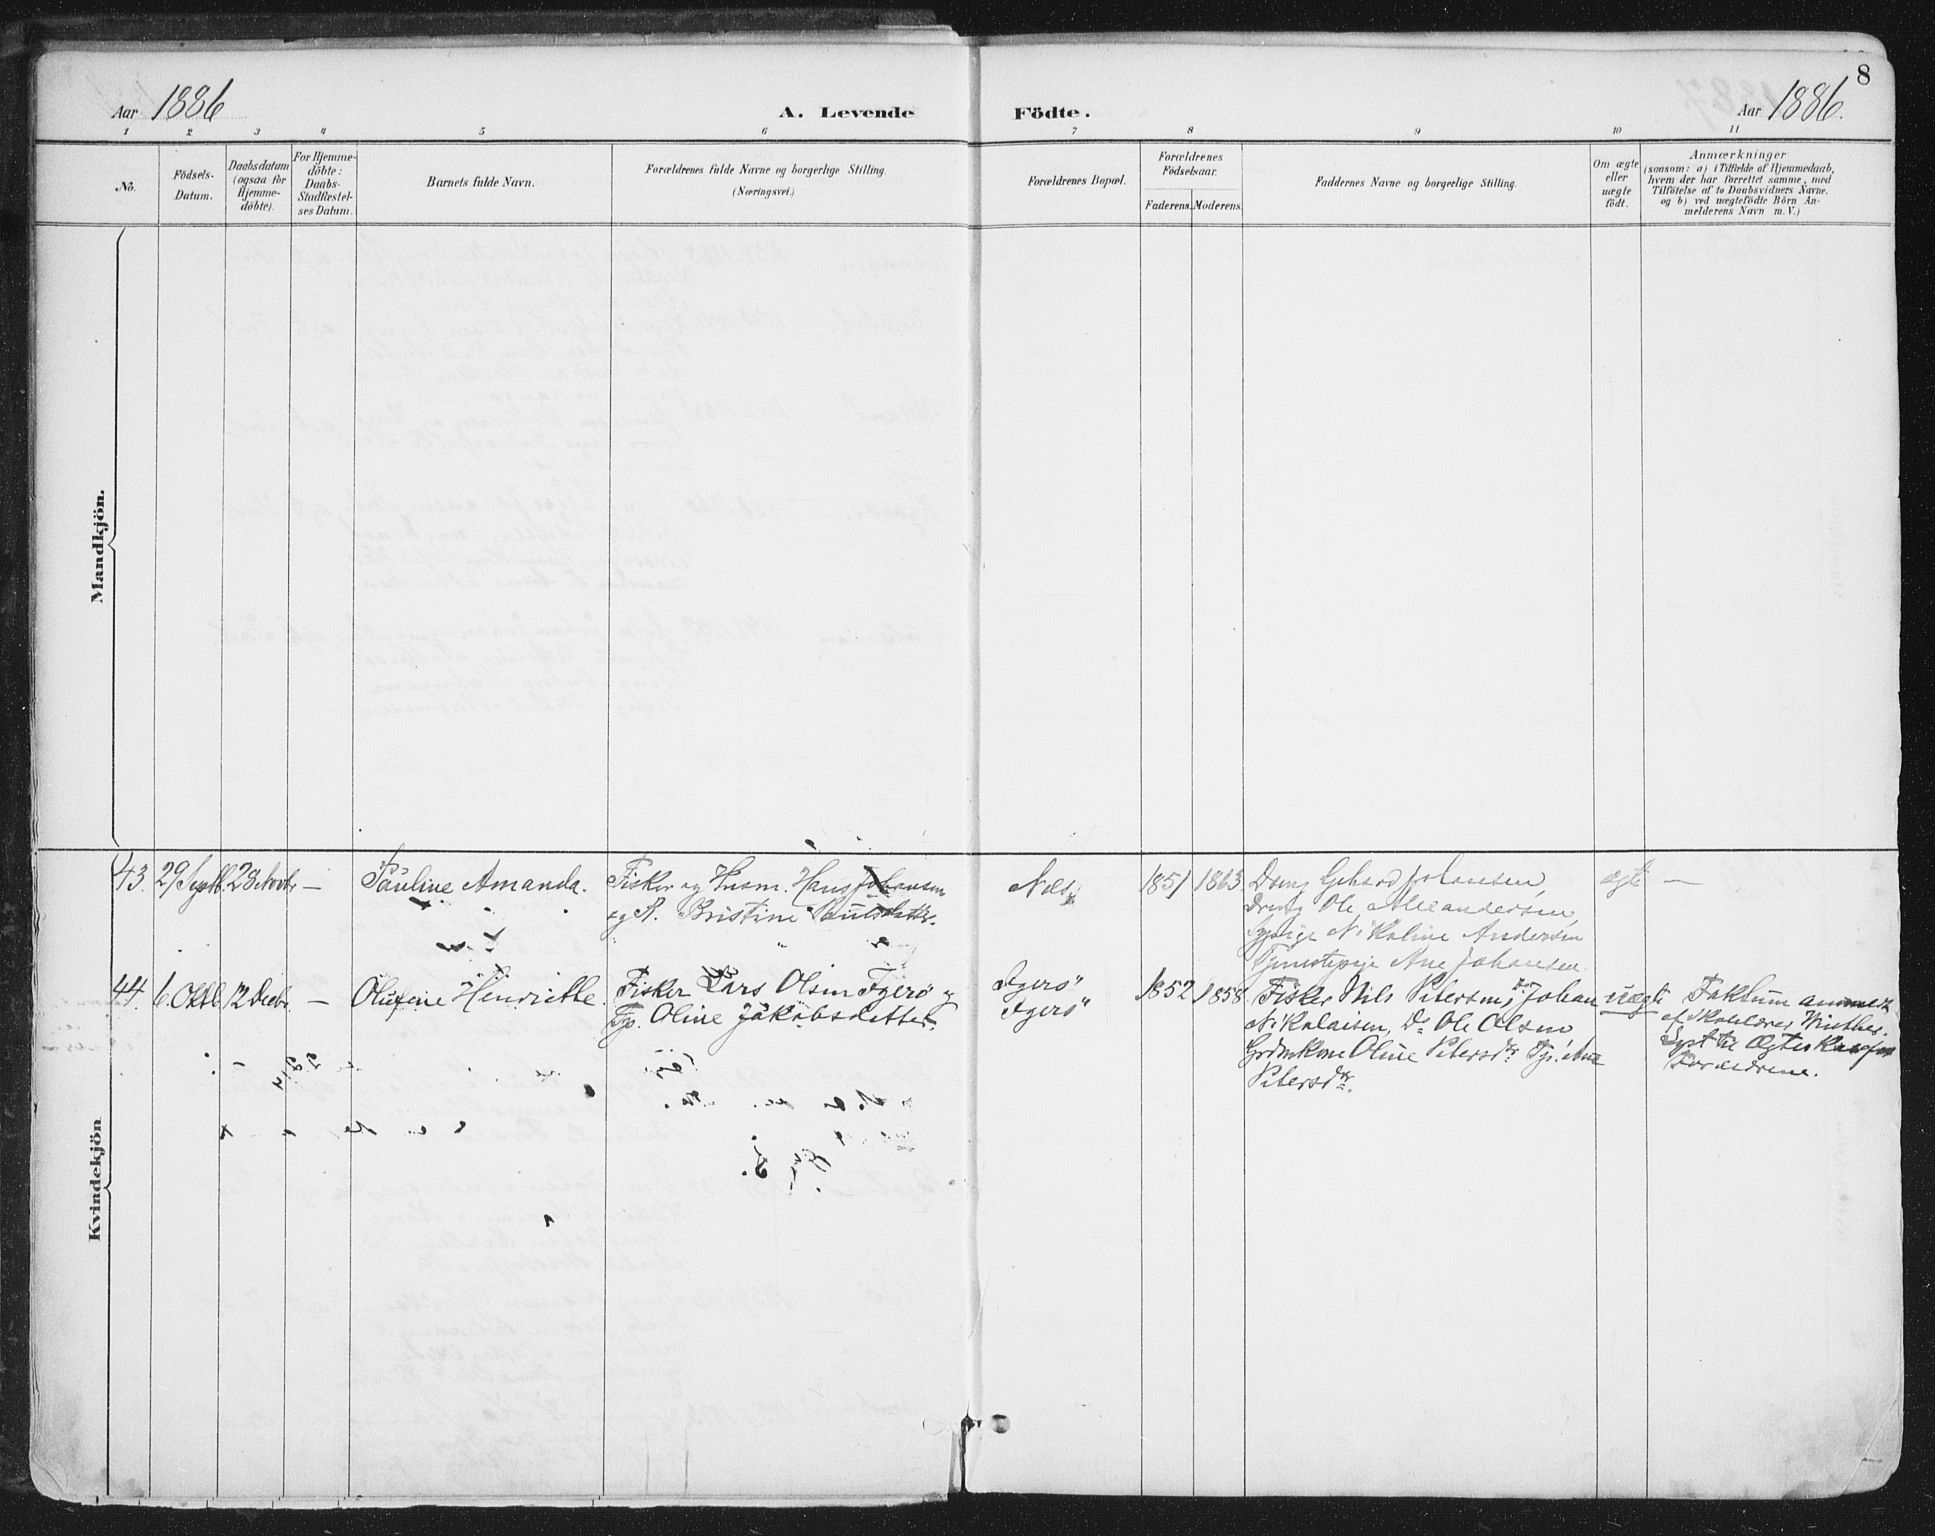 8
Aar 1886
A. Levende
Födte.
Aar 1886.
1 2 3 4 5 6 7 8 9 10 11
No.
Födsels-
Datum.
Daabsdatum
(ogsaa for
Hjemme-
döbte).
For Hjemme-
döbte:
Daabs-
Stadfæstel-
ses Datum.
Barnets fulde Navn.
Forældrenes fulde Navne og borgerlige Stilling.
(Næringsvei.)
Forældrenes Bopæl.
Forældrenes
Födselsaar.
Faderens. Moderens.
Faddernes Navne og borgerlige Stilling.
Om ægte
eller
uægte
födt.
Anmærkninger
(saasom: a) i Tilfælde af Hjemmedaab,
hvem der har forrettet samme, med
Tilföielse af to Daabsvidners Navne.
og b) ved uægtefödte Börn An-
melderens Navn m. V.)
Mandkjön.
Kvindekjön
43. 29 Septb. 28 Novbr — Pauline Amanda.
Fisker og Husm. Hans Johansen
og A. Kristine Paulsdatter.
Næs
1851 1863
Dreng Gehard Johansen,
Dreng Ole Alexandersen,
Nikoline Andersen
Tjenestepige Ane Johansen.
ægte —
44. 6. Oktb 12 Decbr — Olufine Henriette.
Fisker Lars Olsen Igerø og
Tp. Oline Jakobsdatter.
Igerø
Igerø
1852 1858
Fisker Nils Petersen, Do Johan
Nikolaisen, Do Ole Olsen
Grdmkone Oline Petersdtr. Tp. Ane
Petersdtr.
uægte
Faktum anmeldt
af Skolelærer Winther.
Lyst til Ægteskab for
Forældrene.